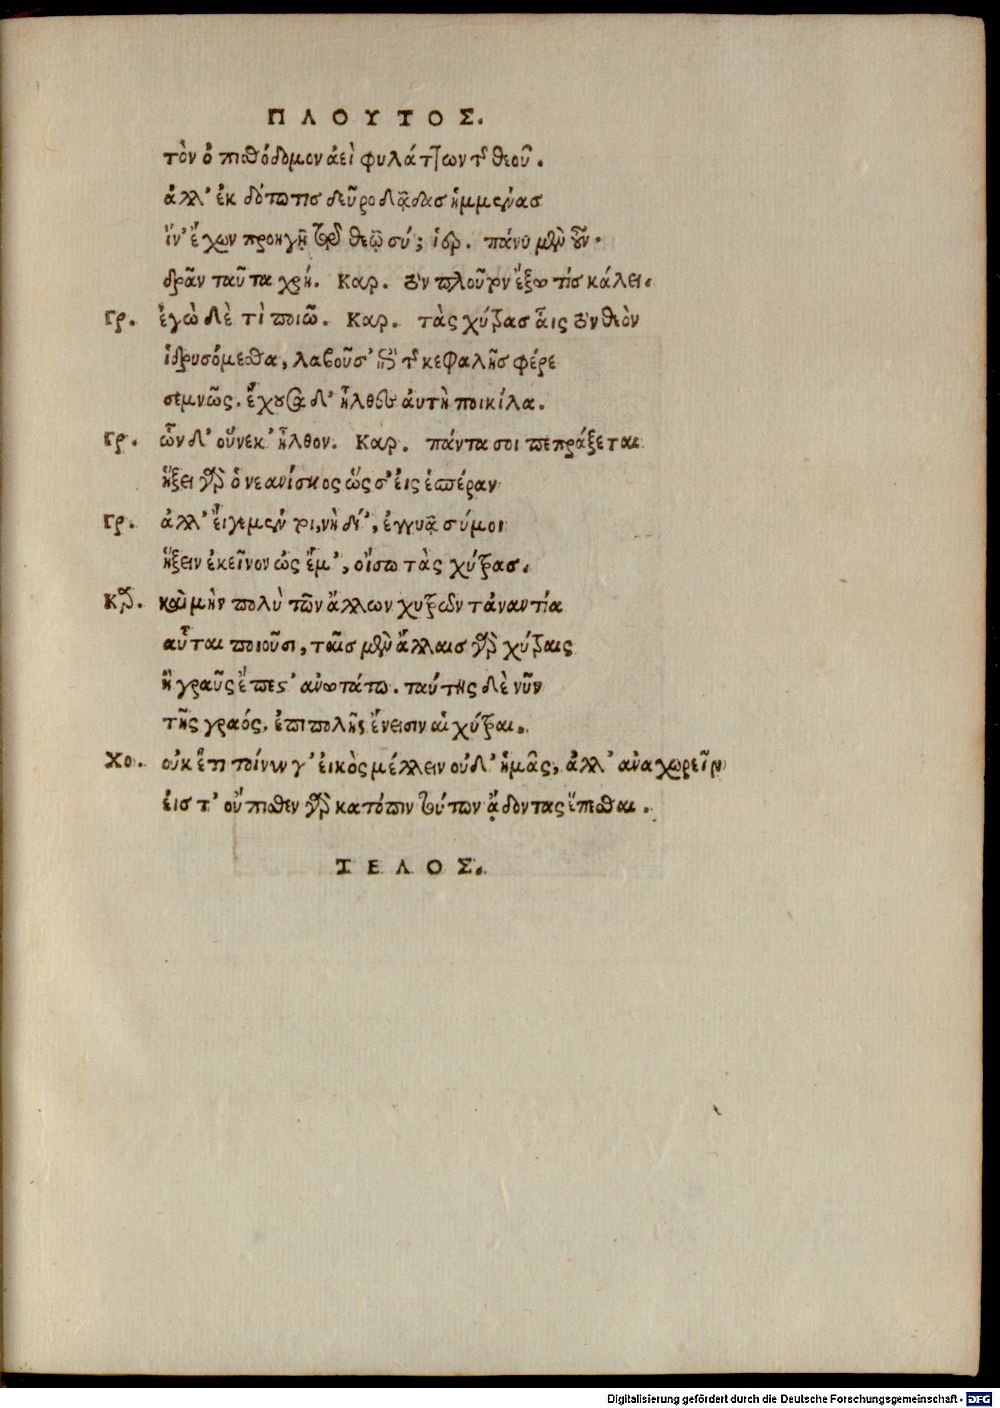 ΠΛΟΥΤΟΣ.
τὸν ὀπισθόδομον ἀεὶ φυλάττων τῆς θεοῦ.
ἀλλ' ἐκ δότω τις δεῦρο δᾷδας ἡμμένας
ἵν' ἔχων προηγῇ τῷ θεῷ σύ; ἱερ. πάνυ μὲν οὖν.
δρᾶν ταῦτα χρή. Καρ. τὸν πλοῦτον ἔξω τίς κάλει.
Γρ. ἐγὼ δὲ τὶ ποιῶ. Καρ. τὰς χύτρας αἷς τὸν θεὸν
ἱδρυσόμεσθα, λαβοῦσ' ἐπὶ τῆς κεφαλῆς φέρε
σεμνῶς. ἔχουσα δ' ἦλθες ἀυτὴ ποικίλα.
Γρ. ὧν δ' οὕνεκ' ἦλθον. Καρ. πάντα σοι πεπράξεται
ἥξει γὰρ ὁ νεανίσκος ὥς σ' εἰς ἑσπέραν
Γρ. ἀλλ' εἴγε μέν τοι, νὴ δί', ἐγγυᾷ σύ μοι
ἥξειν ἐκεῖνον ὡς ἔμ', οἴσω τὰς χύτρας.
Κρ. καὶ μὴν πολὺ τῶν ἄλλων χυτρῶν τἀναντία
αὗται ποιοῦσι, ταῖς μὲν ἄλλαις γὰρ χύτραις
ἡ γραῦς ἔπεστ' ἀνωτάτω. ταύτης δὲ νῦν
τῆς γραός, ἐπιπολῆς ἔνεισιν αἱ χύτραι.
Χο. οὐκ ἔτι τοίνυν γ' ἐικὸς μέλλειν οὐδ' ἡμᾶς, ἀλλ' ἀναχωρεῖν
ἐις τ' οὔπισθεν γὰρ κατόπιν τούτων ᾄδοντας ἕπεσθαι.
ΤΕΛΟΣ.
Digitalisierung gefördert durch die Deutsche Forschungsgemeinschaft - DFG